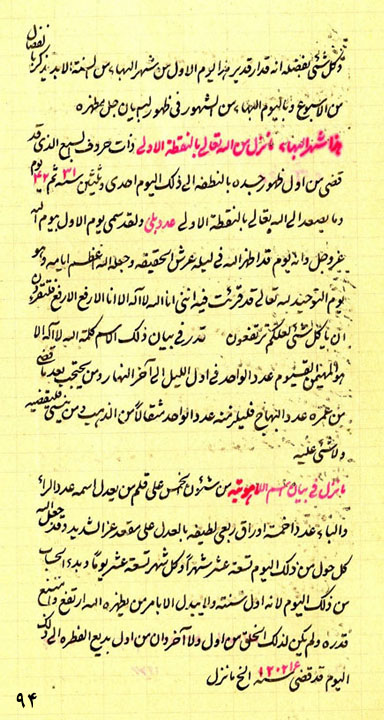 ذكر كل شئ بفضله انه قدار قدير هذا يوم الاول من شهر البهاء من السنة الابديد يذكر بالفضال
من الاسبوع وباليوم البهاء من الشهور فى ظهور لبيان جل مظهره
هذا شهر البهاء ما نزل من الله تعالى بالنقطة الاولى ذات حروف السبع الذى قد
قضى من اول ظهور جسده بالنطفه الى ذلك اليوم احدى وثلثين سنة ٣١ ثم ٣٢ يوم
وما يصعد الى الله تعالى بالنقطة الاولى عدد على ولقد سمى يوم الاول بيوم الله
عز وجل وانه يوم قد اظهر الله فى ليله عرش الحقيقه وجعله الله اعظم ايامه وهو
يوم التوحيد لله تعالى قد قرئت فيه اننى انا الله لا اله الا انا الارفع الارفع فلتقرئن
ان يا كل شئ لعلكم ترتفعون قدر فى بيان ذلك الاسم كلمة الله لا اله الا
هو المهيمن القيوم عدد الواحد فى اول الليل الى آخر النهار ومن يحتجب بعد ما قضى
من عمره عدد الهاء فليلزمنه عدد الواحد مثقالا من الذهب ومن ينسى فليقضيه
ولا شئ عليه
ما نزل فى بيان من شئون الخمس على قلم من يعدل اسمه عدد الراء
والباء عدد اخمسة اوراق ربعى لطيفه بالعدل على مقعد عز الشديد وقد جعل الله
كل حول من ذلك اليوم تسعة عشر شهراً وكل شهر تسعة عشر يوماً وبدء الحساب
من ذلك اليوم لانه اول سنته ولا يبدل الا بامر من يظهره الله ارتفع وامتنع
قدره ولم يكن لذلك الخلق من اول ولا آخر وان من اول بديع الفطره الى ذلك
اليوم قد قضى سنه ١٢٠٢١٦ الخ ما نزل
٩۴